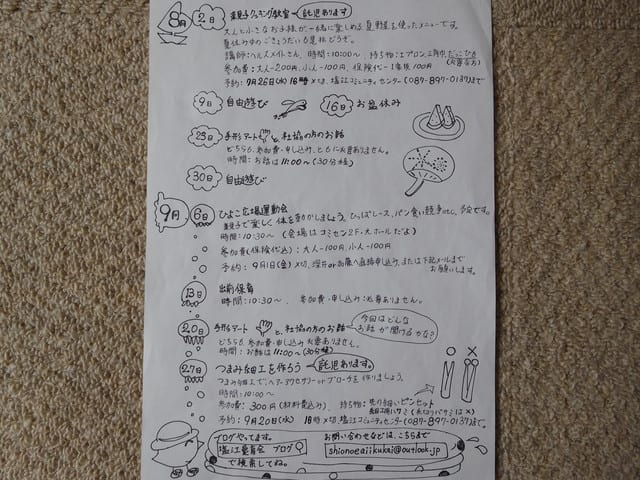 8月
2日 親子クッキング教室 託児あります
大人と小さなお子様が一緒に楽しめる夏野菜を使ったメニューです。
夏休み中のごきょうだいも是非どうぞ。
講師：ヘルスメイトさん、時間：10:00〜、持ち物：エプロン、三角巾、だっこひも
(必要な方)
参加費：大人-200円、小人-100円、保険代-1家族100円
予約：7月26日(水)16時〆切、塩江コミュニティセンター(087-897-0137)まで
9日 自由遊び 16日 お盆休み
23日 手形アートと、社協の方のお話
どちらも、参加費・申し込み、ともに必要ありません。
時間：お話は11:00〜(30分程)
30日 自由遊び
9月
6日 ひよこ広場運動会
親子で楽しく体を動かしましょう。ひっぱレース、パン食い競争etc.予定です。
時間：10:30〜 (会場はコミセン2F・大ホールだよ)
参加費(保険代込)：大人-100円、小人-100円
予約：9月1日(金)〆切、or加藤へ直接申し込み、または下記メールまで
お願いします。
13日 出前保育
時間：10:30〜、参加費・申し込み：必要ありません。
20日 手形アートと、社協の方のお話
今回はどんなお話が聞けるかな？
どちらも、参加費・申し込み必要ありません。
時間：お話は11:00〜(30分程)
27日 つまみ細工を作ろう 託児あります。
つまみ細工で、ヘアーアクセサリーorブローチを作りましょう。
時間：10:00〜
○ ×
参加費：300円(材料費込み)、持ち物：先の細いピンセット
予約：9月20日(水) 16時〆切、塩江コミュニティセンター(087-897-0137)まで。
ブログやってます。
塩江愛育会 ブログ
で検索してね。
お問い合わせなどは、こちらまで
shionoeaiikukai@outlook.jp